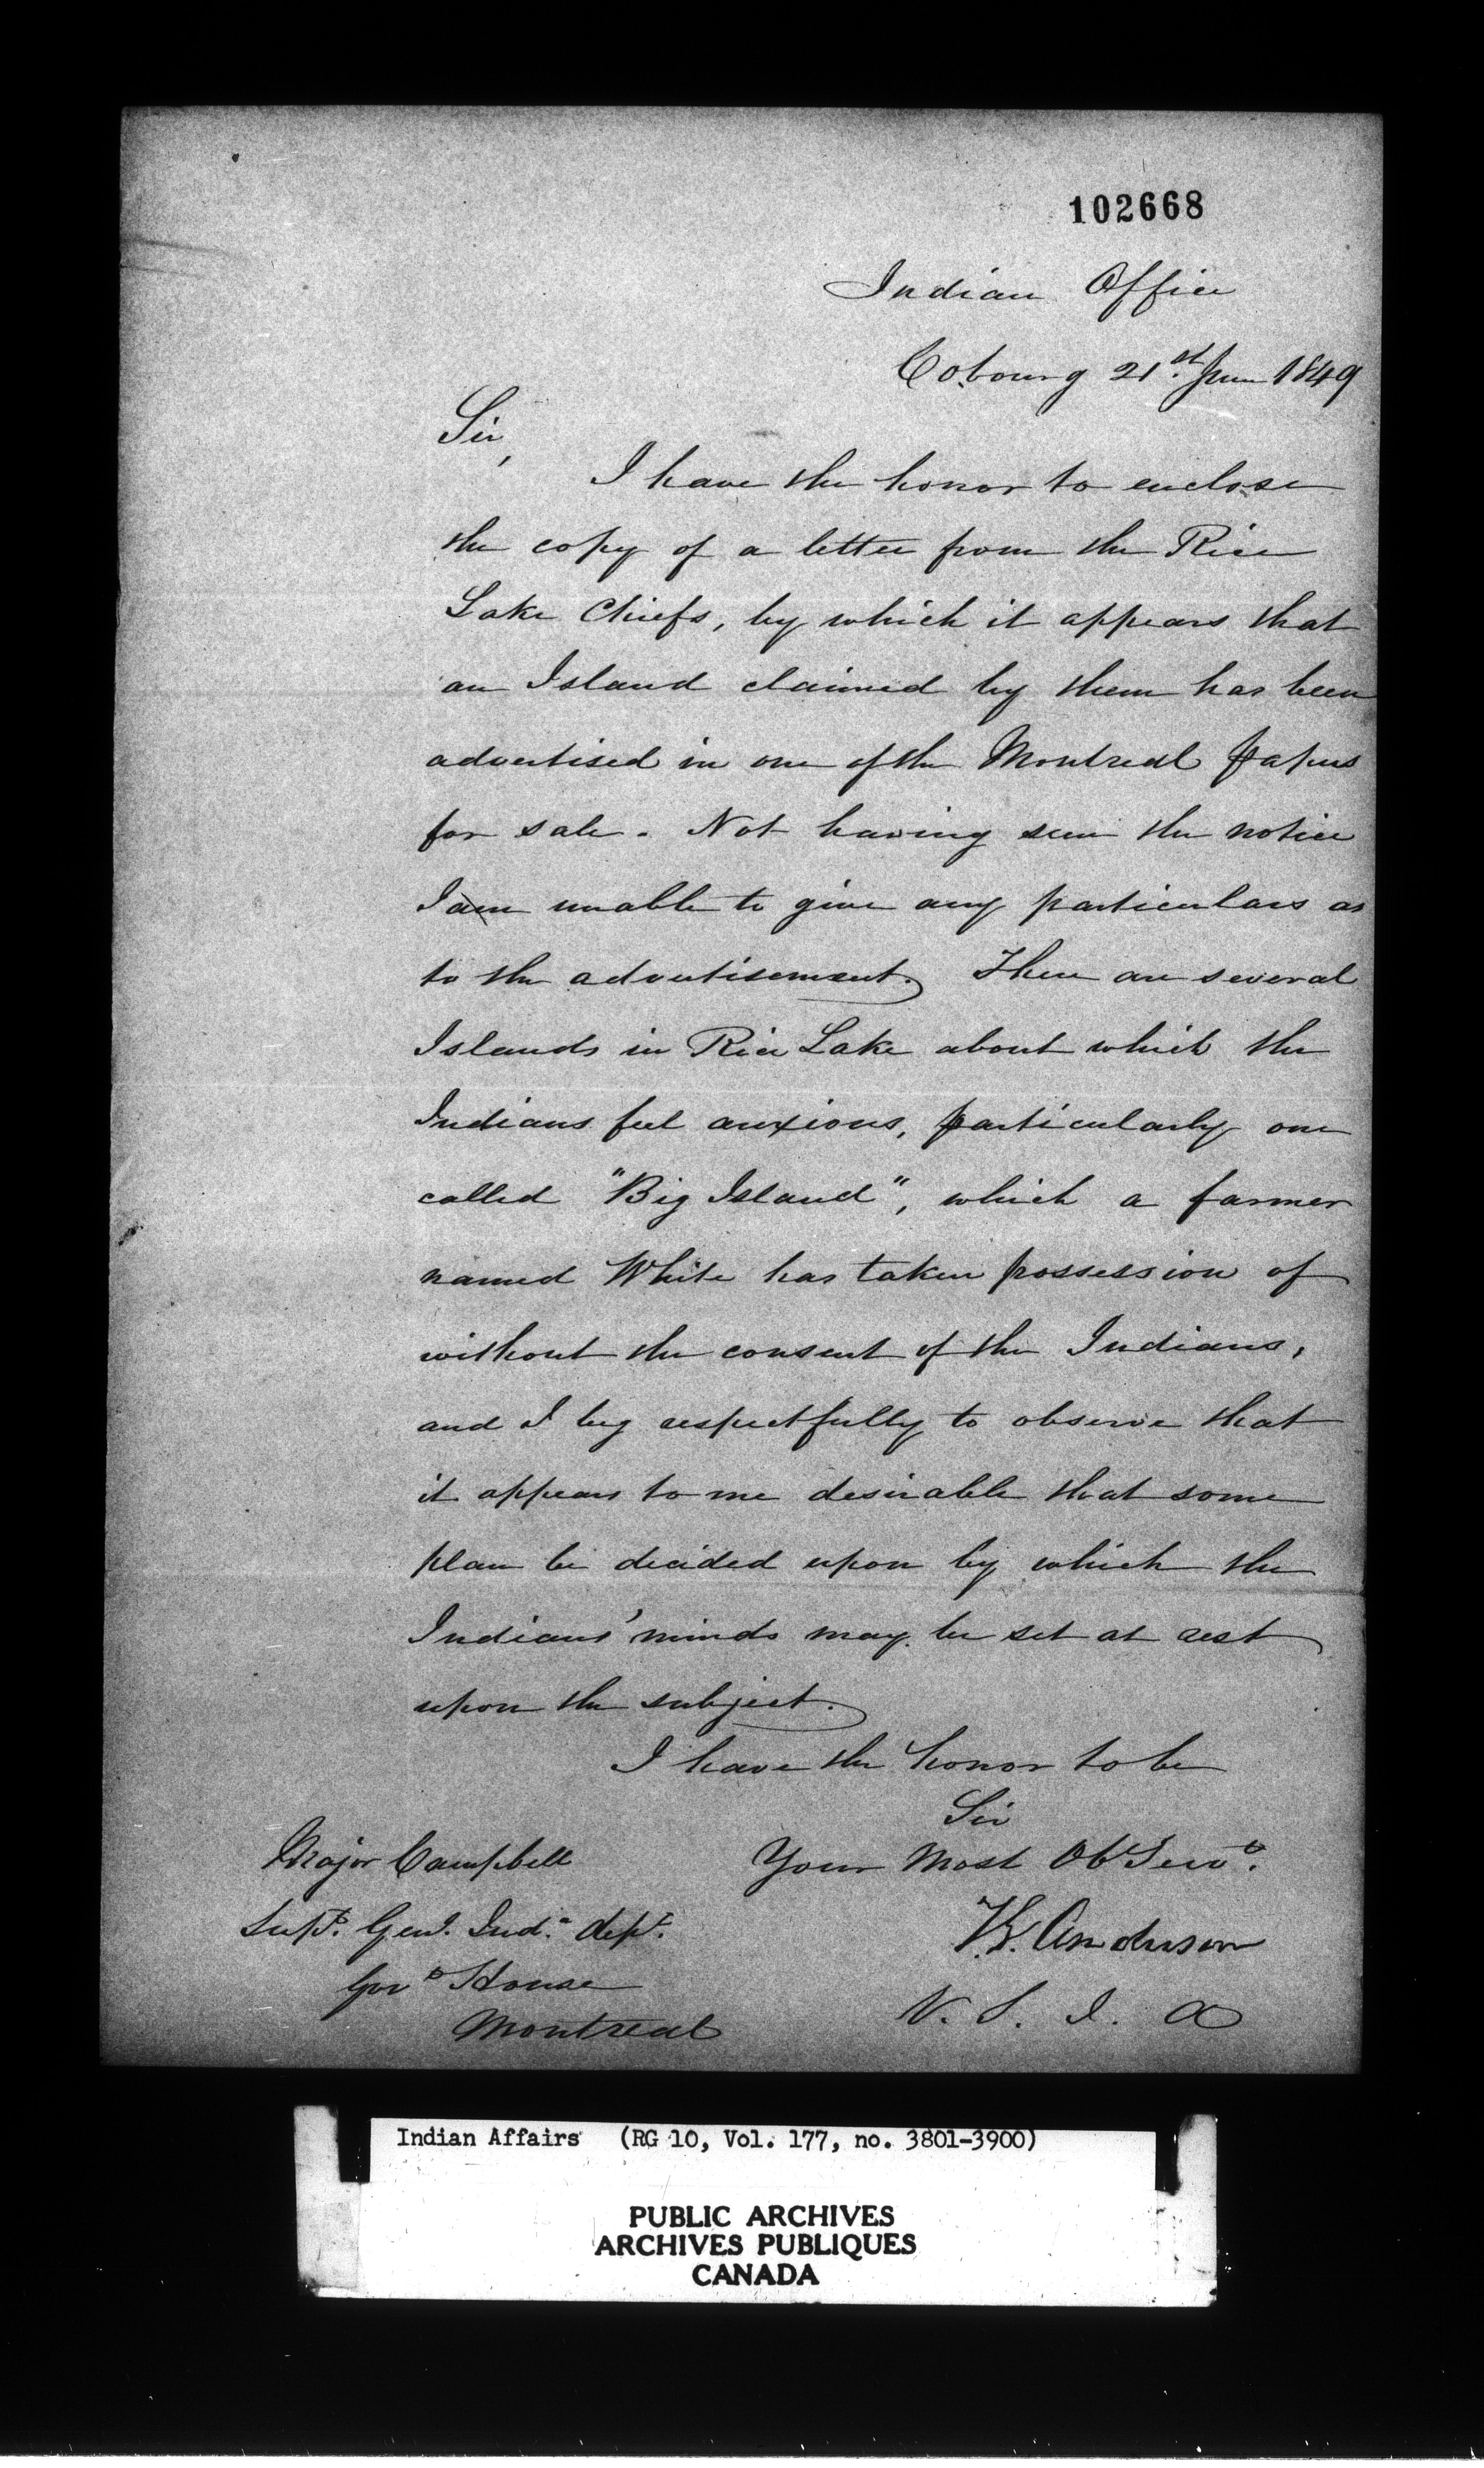 102668
Indian Office
Cobourg 21st. June 1849
Sir,
I have the honor to enclose
the copy of a letter from the Rice
Lake Chiefs, by which it appears that
an Island claimed by them has been
advertised in one of the Montreal papers
for sale. Not having seen the notice
I am unable to give any particulars as
to the advertisement. There are several
Islands in Rice Lake about which the
Indians feel anxious, particularly one
called "Big Island", which a farmer
named White has taken possession of
without the consent of the Indians,
and I beg respectfully to observe that
it appears to me desirable that some
plan be decided upon by which the
Indians' minds may be set at rest
upon the subject.
I have the honor to be
Sir
Your Most Ob Servt.
Major Campbell
Supt. Genl. Ind. dept.
Govt House
Montreal
Anderson
V. S. I. A
Indian Affairs (RG 10, Vol. 177, no. 3801-3900)
PUBLIC ARCHIVES
ARCHIVES PUBLIQUES
CANADA